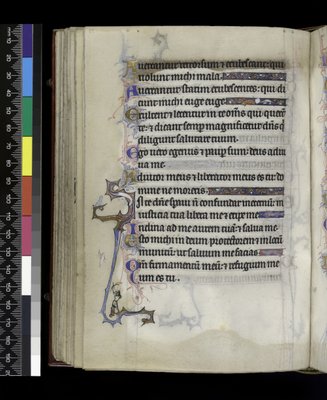 Auertantur retrorsum ⁊ erubescant: qui
uolunt michi mala.
Auertantur statim erubescentes: qui di
cunt michi euge euge.
Exultent ⁊ letentur in te om̄s qui querūt
te: ⁊ dicant semp magnificetur dn̄s q̄
diligunt salutare tuum.
Ego uero egenus ⁊ paup sum: deus adiu
ua me.
Adiutor meus ⁊ liberator meus es tu: do
mine ne moreris.
In te dn̄e spaui n̄ confundar in eternū: in
iusticia tua libera me ⁊ eripe me.
Inclina ad me aurem tuā: ⁊ salua me.
Esto michi in deum protectorem: ⁊ in locū
munitū: ut saluum me facias.
Qm̄ firmamentū meū: ⁊ refugium me
um es tu.